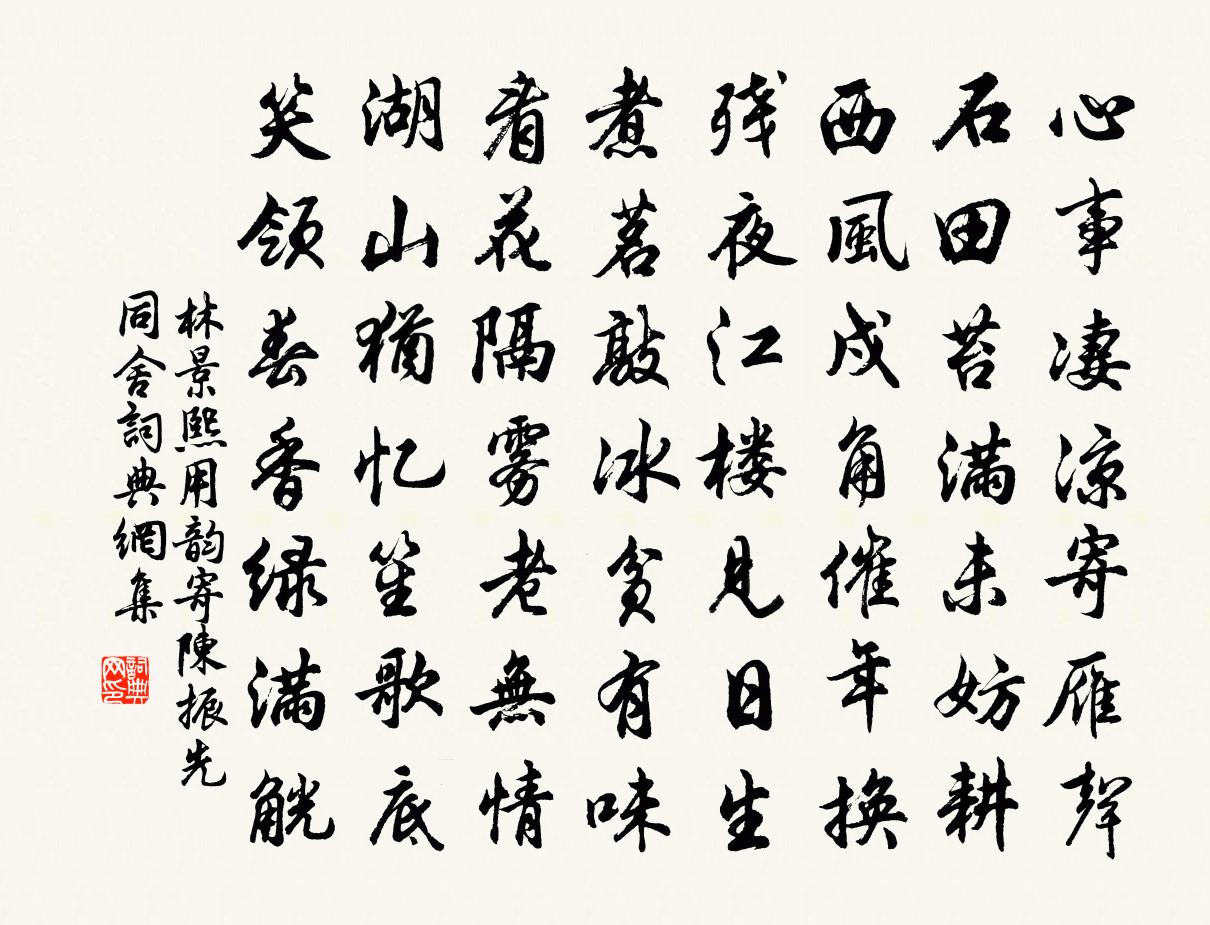 心事凄凉寄雁聲
石田苔满未妨耕
西風戍角催年換
残夜江楼見日生
煮茗敲冰贫有味
看花隔雾老無情
湖山猶忆笙歌底
笑領春香绿满觥
林景熙用韵寄陳振先
同舍詞典網集
詞典网印